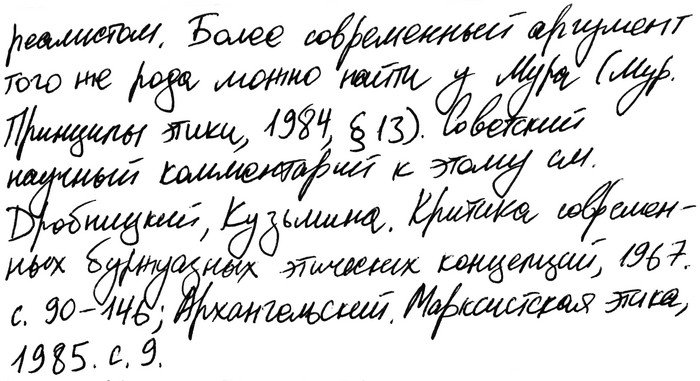 реалистом. Более современный аргумент
того же рода можно найти у Мура (Мур.
Принципы этики, 1984, § 13). Советский
научный комментарий к этому см.
Дробницкий, Кузьмина. Критика современ-
ных буржуазных этических концепций, 1967.
с. 90-146; Архангельский. Марксистская этика,
1985. с. 9.